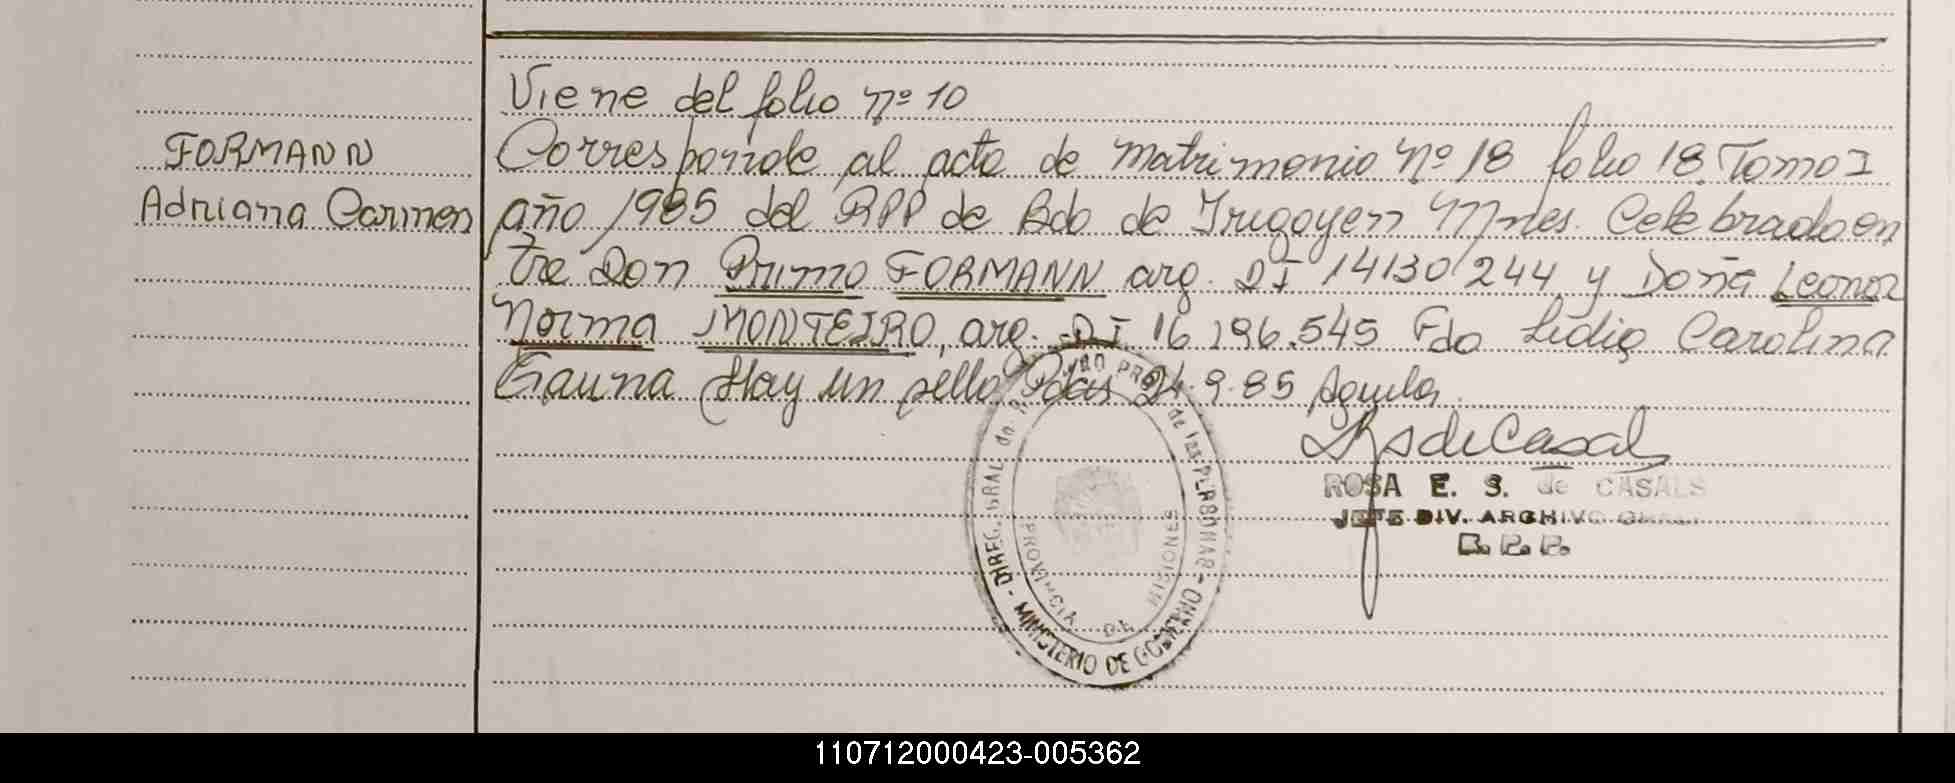 Viene del folio nº 10
FORMANN
Adriana Carmen
Corresponde al acta de matrimonio nº 18 folio 18 Tomo I
año 1985 del RPP de Bdo de Irigoyen Mnes. Celebrado en
tre Don Primo FORMANN arg. DI 14130244 y Doña Leonor
Norma MONTEIRO, arg. DI 16196.545 Fdo Lidia Carolina
Gauna Hay un sello Pdas 24.9.85 Aguilar
ROSA E. S. de CASALS
JEFE DIV. ARCHIVO GRAL.
R. P. P.
DIREC. GRAL. de REGISTRO PROV. de las PERSONAS - MINISTERIO DE GOBIERNO -
PROVINCIA DE MISIONES
110712000423-005362